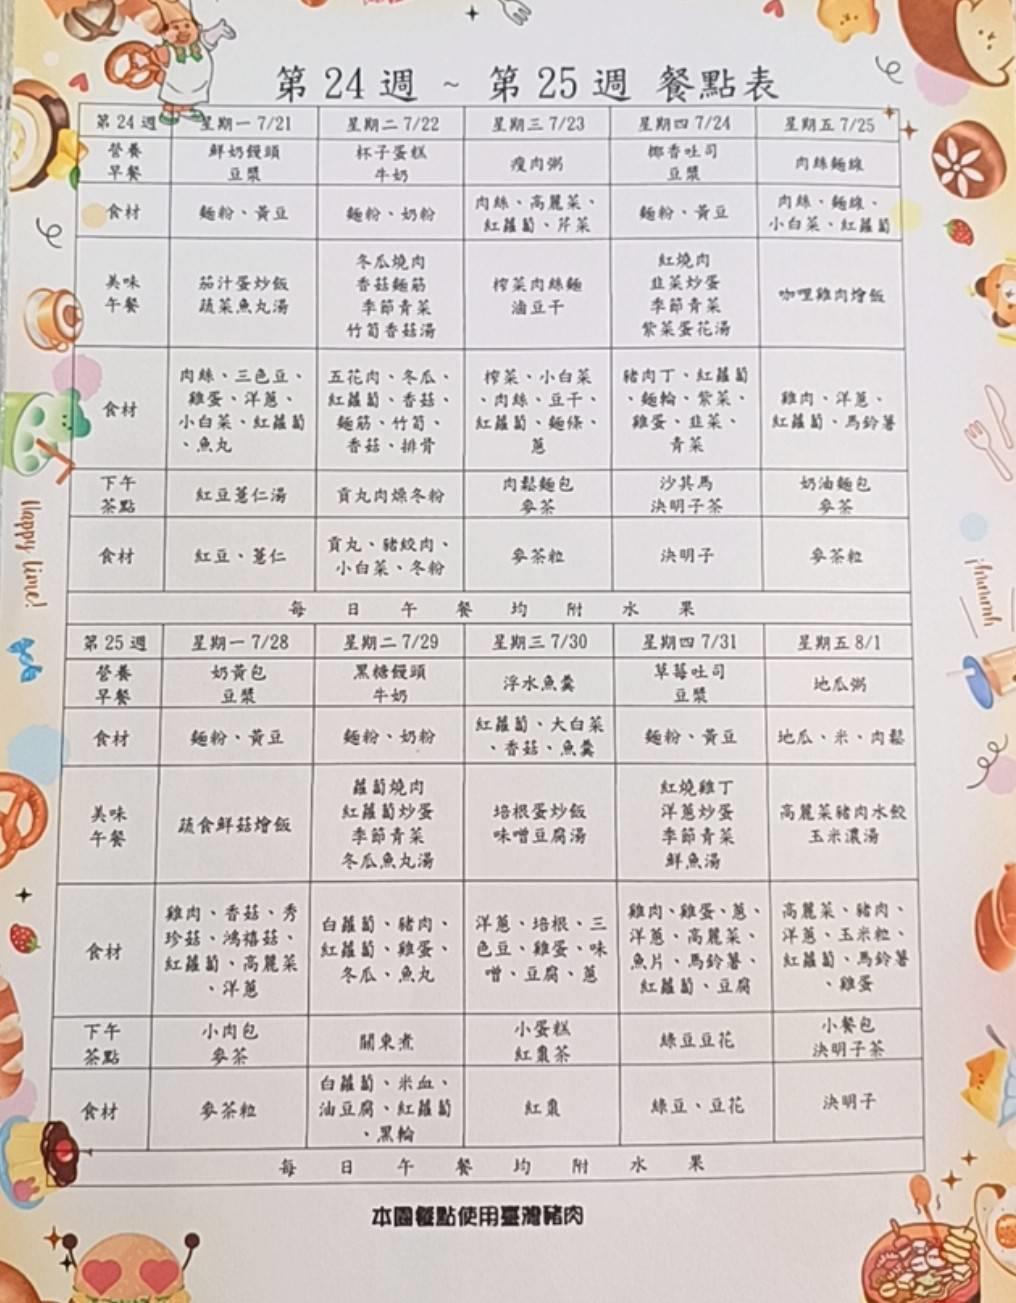 第 24 週 ~ 第 25 週 餐點表
第 24 週 星期一 7/21 星期二 7/22 星期三 7/23 星期四 7/24 星期五 7/25
營養
早餐
鮮奶饅頭
豆漿
杯子蛋糕
牛奶
瘦肉粥
椰香吐司
豆漿
肉絲麵線
食材
麵粉、黃豆
麵粉、奶粉
肉絲、高麗菜、
紅蘿蔔、芹菜
麵粉、黃豆
肉絲、麵線、
小白菜、紅蘿蔔
美味
午餐
茄汁蛋炒飯
蔬菜魚丸湯
冬瓜燒肉
香菇麵筋
季節青菜
竹筍香菇湯
榨菜肉絲麵
滷豆干
紅燒肉
韭菜炒蛋
季節青菜
紫菜蛋花湯
咖哩雞肉燴飯
食材
肉絲、三色豆、
雞蛋、洋蔥、
小白菜、紅蘿蔔
、魚丸
五花肉、冬瓜、
紅蘿蔔、香菇、
麵筋、竹筍、
香菇、排骨
榨菜、小白菜
、肉絲、豆干、
紅蘿蔔、麵條、
蔥
豬肉丁、紅蘿蔔
、麵輪、紫菜、
雞蛋、韭菜、
青菜
雞肉、洋蔥、
紅蘿蔔、馬鈴薯
下午
茶點
紅豆薏仁湯
貢丸肉燥冬粉
肉鬆麵包
麥茶
沙其馬
決明子茶
奶油麵包
麥茶
食材
紅豆、薏仁
貢丸、豬絞肉、
小白菜、冬粉
麥茶粒
決明子
麥茶粒
每日午餐均附水果
第 25 週 星期一 7/28 星期二 7/29 星期三 7/30 星期四 7/31 星期五 8/1
營養
早餐
奶黃包
豆漿
黑糖饅頭
牛奶
浮水魚羹
草莓吐司
豆漿
地瓜粥
食材
麵粉、黃豆
麵粉、奶粉
紅蘿蔔、大白菜
、香菇、魚羹
麵粉、黃豆
地瓜、米、肉鬆
美味
午餐
蔬食鮮菇燴飯
蘿蔔燒肉
紅蘿蔔炒蛋
季節青菜
冬瓜魚丸湯
培根蛋炒飯
味噌豆腐湯
紅燒雞丁
洋蔥炒蛋
季節青菜
鮮魚湯
高麗菜豬肉水餃
玉米濃湯
食材
雞肉、香菇、秀
珍菇、鴻禧菇、
紅蘿蔔、高麗菜
、洋蔥
白蘿蔔、豬肉、
紅蘿蔔、雞蛋、
冬瓜、魚丸
洋蔥、培根、三
色豆、雞蛋、味
噌、豆腐、蔥
雞肉、雞蛋、蔥、
洋蔥、高麗菜、
魚片、馬鈴薯、
紅蘿蔔、豆腐
高麗菜、豬肉、
洋蔥、玉米粒、
紅蘿蔔、馬鈴薯
、雞蛋
下午
茶點
小肉包
麥茶
關東煮
小蛋糕
紅棗茶
綠豆豆花
小餐包
決明子茶
食材
麥茶粒
白蘿蔔、米血、
油豆腐、紅蘿蔔
、黑輪
紅棗
綠豆、豆花
決明子
每日午餐均附水果
本園餐點使用臺灣豬肉
Happy time!